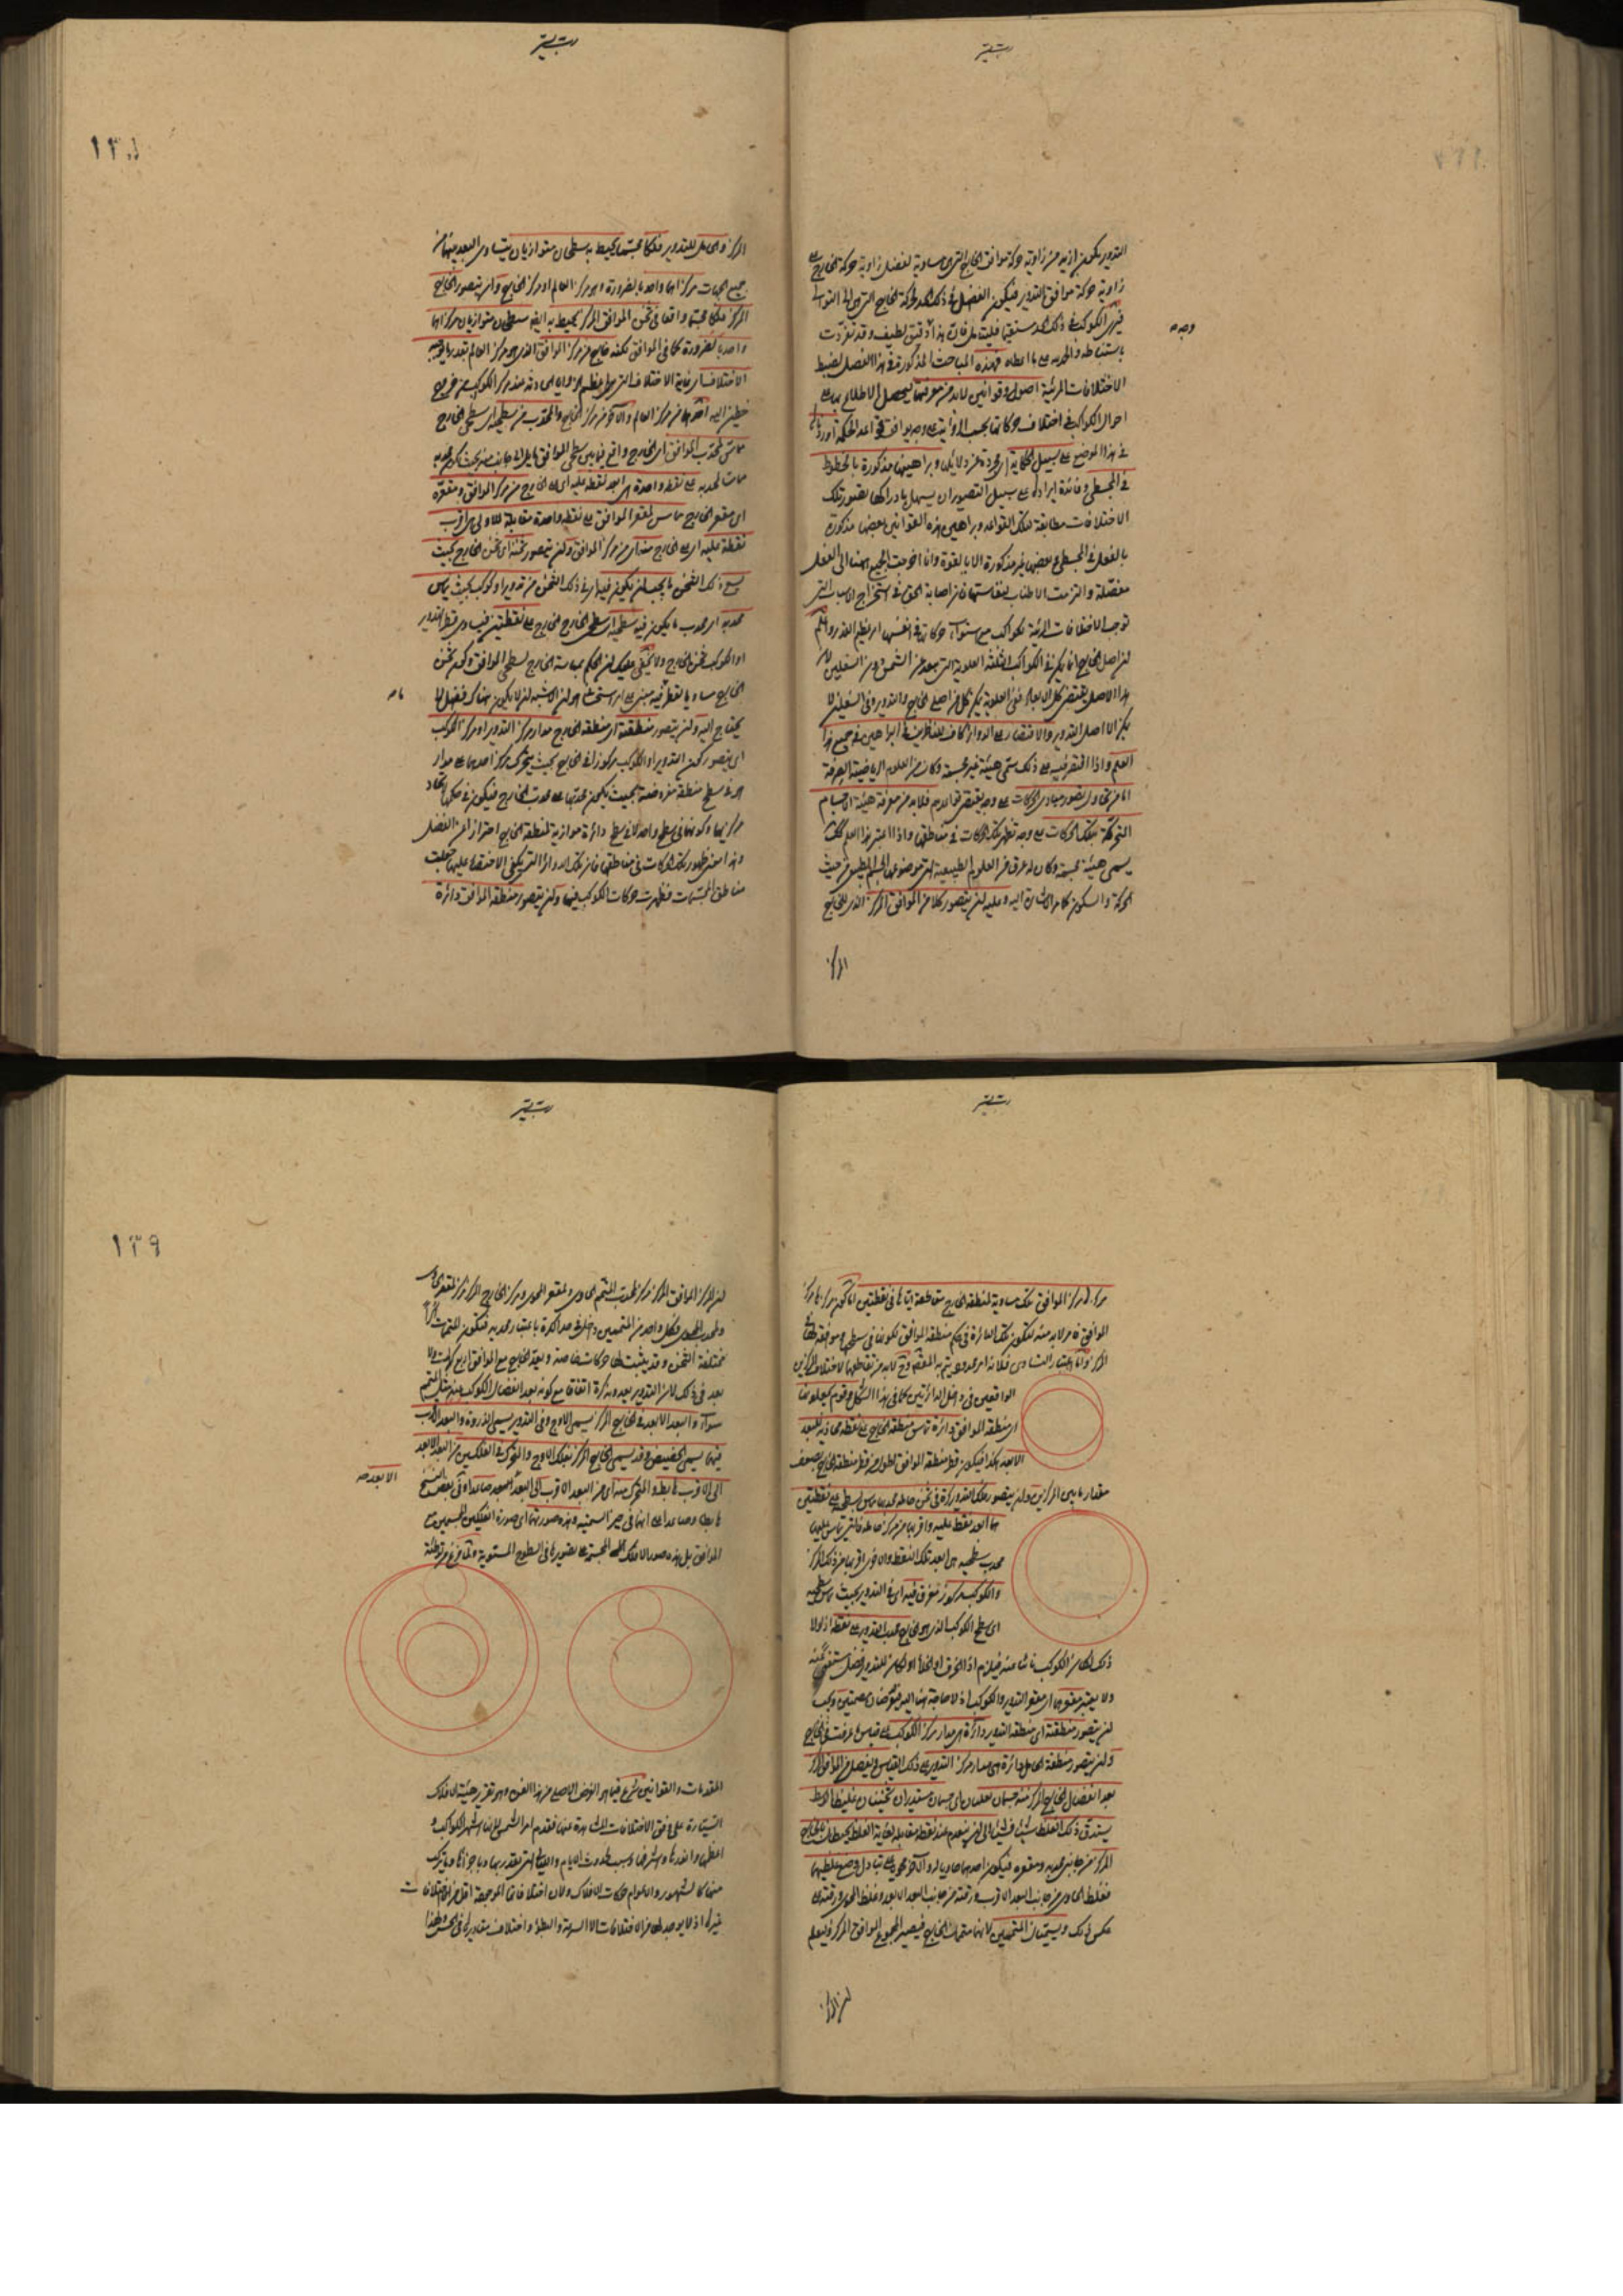 التدوير يكون ازيد من زاوية حركة موافق الخارج التي هي مساوية لفضل زاوية حركة الخارج على
زاوية حركة موافق التدوير فيكون الفضل في ذلك الحد لحركة الخارج التي هي الى التوالي
فيرى الكوكب في ذلك الحد مستقيما فليتأمل فان هذا دقيق لطيف وقد تفردت
باستنباطه والحمد لله على ما اعطاه فهذه المباحث المذكورة في هذا الفصل لضبط
الاختلافات المرئية اصول وقوانين لابد من معرفتها ليحصل الاطلاع بها على
احوال الكواكب في اختلاف حركاتها بحسب الرؤية على وجه يوافق قواعد الحكمة اوردناها
في هذا الموضع على سبيل الحكاية اي مجردة عن دلائلها وبراهينها مذكورة بالخطوط
في المجسطي وفائدة ايرادها على سبيل التصوير ان يسهل بادراكها تصور تلك
الاختلافات مطابقة لتلك القواعد وبراهين هذه القوانين بعضها مذكورة
بالفعل في المجسطي وبعضها غير مذكورة الا بالقوة وانا اخرجت الجميع ههنا الى الفعل
مفصلة والتزمت الاطناب لنفاستها فان اصابة الحق في استخراج الاسباب التي
توجب الاختلافات المرئية للكواكب مع تساوي حركاتها في انفسها امر عظيم القدر واعلم
ان اصل الخارج انما يمكن في الكواكب الثلثة العلوية التي تبعد عن الشمس دون السفليين لان
هذا الاصل يقتضي كل الابعاد ففي العلوية يمكن كل من اصلي الخارج والتدوير وفي السفليين لا
يمكن الا اصل التدوير والاقتصار على الدوائر كاف للناظرين في البراهين في جميع هذا
العلم واذا اقتصر فيه على ذلك سمي هيئة غير مجسمة وكان من العلوم الرياضية الصرفة
اما من يحاول تصور مبادي الحركات على وجه يقتضي قواعدهم فلابد من معرفة هيئة الاجسام
المتحركة بتلك الحركات على وجه تظهر تلك الحركات في مناطقها واذا اعتبر هذا العلم كذلك
يسمى هيئة مجسمة وكان له عرق من العلوم الطبيعية التي موضوعها الجسم الطبيعي من حيث
الحركة والسكون كما مر الاشارة اليه وعليه ان يتصور كلا من الموافق المركز الذي للخارج
المركز
١٣٨
المركز والحامل للتدوير فلكا مجسما يحيط به سطحان متوازيان يتساوى البعد بينهما من
جميع الجهات مركزاهما واحد بالضرورة وهو مركز العالم او مركز الخارج وان يتصور الخارج
المركز فلكا مجسما واقعا في ثخن الموافق المركز يحيط به ايضا سطحان متوازيان مركزاهما
واحد بالضرورة كما في الموافق لكنه خارج عن مركز الموافق الذي هو مركز العالم بقدر ما يوجبه
الاختلاف اي غاية الاختلاف التي هي اعظم الزوايا الحادثة عند مركز الكوكب من خروج
خطين اليه احدهما من مركز العالم والآخر من مركز الخارج والمحدب من سطحيه اي سطحي الخارج
مماس لمحدب الموافق اي الخارج واقع فيما بين سطحي الموافق مايل الى جانب منه بحيث يكون محدبه
مماسا لمحدبه على نقطة واحدة هي ابعد نقطة عليه اي على الخارج من مركز الموافق ومقعره
اي مقعر الخارج مماس لمقعر الموافق على نقطة واحدة مقابلة للاولى هي اقرب
نقطة عليه اي على الخارج منه اي من مركز الموافق وان يتصور ثخنه اي ثخن الخارج بحيث
يسع ذلك الثخن ما يجب ان يكون فيه اي في ذلك الثخن من تدوير او كوكب بحيث يماس
محدبه اي محدب ما يكون فيه سطحيه اي سطحي الخارج على نقطتين فيساوي قطر التدوير
او الكوكب ثخن الخارج ولا يخفى عليك ان الحكم بمماسة الخارج لسطحي الموافق وكون ثخن
الخارج مساويا لقطر ما فيه مبني على امر استحساني هو ان الاشبه ان لا يكون هناك فضل لا
يحتاج اليه وان يتصور منطقته اي منطقة الخارج مدار مركز التدوير او مركز الكوكب
اي يتصور كون التدوير او الكوكب مركوزا في الخارج بحيث يتحرك مركز احدهما على مدار
هو في سطح منطقة مفروضة بحيث يكون محدبها على محدب الخارج فيكون في حكمها لاتحاد
مركزيهما وكونهما في سطح واحد لا في سطح دائرة موازية لمنطقة الخارج احترازا عن الفضل
وهذا معنى ظهور تلك الحركات في مناطقها فان تلك الدوائر التي يكفي الاقتصار عليها جعلت
مناطق المجسمات فظهرت حركات الكواكب فيها وان يتصور منطقة الموافق دائرة
مركزها مركز الموافق تلك مساوية لمنطقة الخارج متقاطعة اياها في نقطتين اما كون مركزها مركز
الموافق فامر لابد منه لتكون تلك الدائرة في حكم منطقة الموافق لكونها في سطحها وموافقة لها في
المركز واما اعتبار التساوي
الواقعين في داخل الدائرتين كما في هذا الشكل وقوم يجعلون
اي منطقة الموافق دائرة تماس منطقة الخارج على نقطة محاذية للبعد
الابعد هكذا فيكون قطر منطقة الموافق اطول من قطر منطقة الخارج بضعف
مقدار ما بين المركزين وان يتصور فلك التدوير كرة في ثخن حامله محدبها مماس لسطحيه على نقطتين
هما ابعد نقط عليه واقربها من مركز حامله فالتي تماس عليها
محدب سطحيه هي ابعد تلك النقط والاخرى اقربها من ذلك المركز
والكوكب مركوز مغرق فيه اي في التدوير بحيث يماس سطحه
اي سطح الكوكب الذي هو محدبه محدب التدوير على نقطة اذ لولا
ذلك لكان الكوكب ناتئا منه فيلزم اذا تحرك الخرق او الخلأ او لكان للتدوير فضل مستغنى عنه
ولا يعتبر مقعرهما اي مقعر التدوير والكوكب اذ لا حاجة هنا اليه فيفرضان مصمتين ويجب
ان يتصور منطقته اي منطقة التدوير دائرة هي مدار مركز الكوكب على قياس ما عرفت في الخارج
وان يتصور منطقة الحامل دائرة هي مدار مركز التدوير على ذلك القياس ويفصل من الموافق المركز
بعد انفصال الخارج المركز منه جسمان تعليميان اي جسمان مستديران ثخينان غليظا الوسط
يستدق ذلك الغلظ شيئا فشيئا الى ان ينعدم عند نقطة مقابلة لغاية الغلظ يحيطان بالخارج
المركز من جانبي محدبه ومقعره فيكون احدهما حاويا له والآخر محويا على تبادل وضع غلظيهما
فغلظ الحاوي من جانب البعد الاقرب ورقته من جانب البعد الابعد وغلظ المحوي ورقته على
عكس ذلك ويسميان المتممين لانهما متممان للخارج فيصير المجموع الموافق المركز وليعلم
ان المركز
١٣٩
ان مركز الموافق المركز مركز لمحدب المتمم الحاوي ولمقعر المحوي ومركز الخارج المركز مركز لمقعر الحاوي
ولمحدب المحوي وكل واحد من المتممين
مختلفة الثخن وقد يثبت لها حركات خاصة ويعد الخارج مع الموافق
بعد في ذلك لان التدوير يعد
سواء والبعد الابعد في الخارج المركز يسمى الاوج وفي التدوير يسمى الذروة والبعد الاقرب
فيهما يسمى الحضيض وقد يسمى الخارج المركز بفلك الاوج والمتحرك في الفلكين من البعد الابعد
الى الاقرب هابط والمتحرك منه اي من البعد الاقرب الى البعد الابعد صاعد وفي بعض النسخ
هابطا وصاعدا على انهما في حيز التسمية وهذه صورتها اي صورة الفلكين المجسمين مع
الموافق بل هذه صور الافلاك المجسمة على تصويرها في السطوح المستوية ولما فرغ من توطئة
المقدمات والقوانين شرع فيما هو الغرض الاصلي من هذا الفن وهو تقرير هيئة الافلاك
السيارة على وفق الاختلافات المشاهدة عنها فقدم امر الشمس لانها اشهر الكواكب و
اعظمها وانورها واشرفها وسبب لحدوث الايام والليالي التي يقدر بها وباجزائها وبما يتركب
منها كالشهور والاعوام حركات الافلاك ولان اختلافاتها الموجهة اقل من اختلافات
غيرها اذ لا يوجد لها من الاختلافات الا السرعة والبطؤ واختلاف مقاديرها في الحس ولهذا